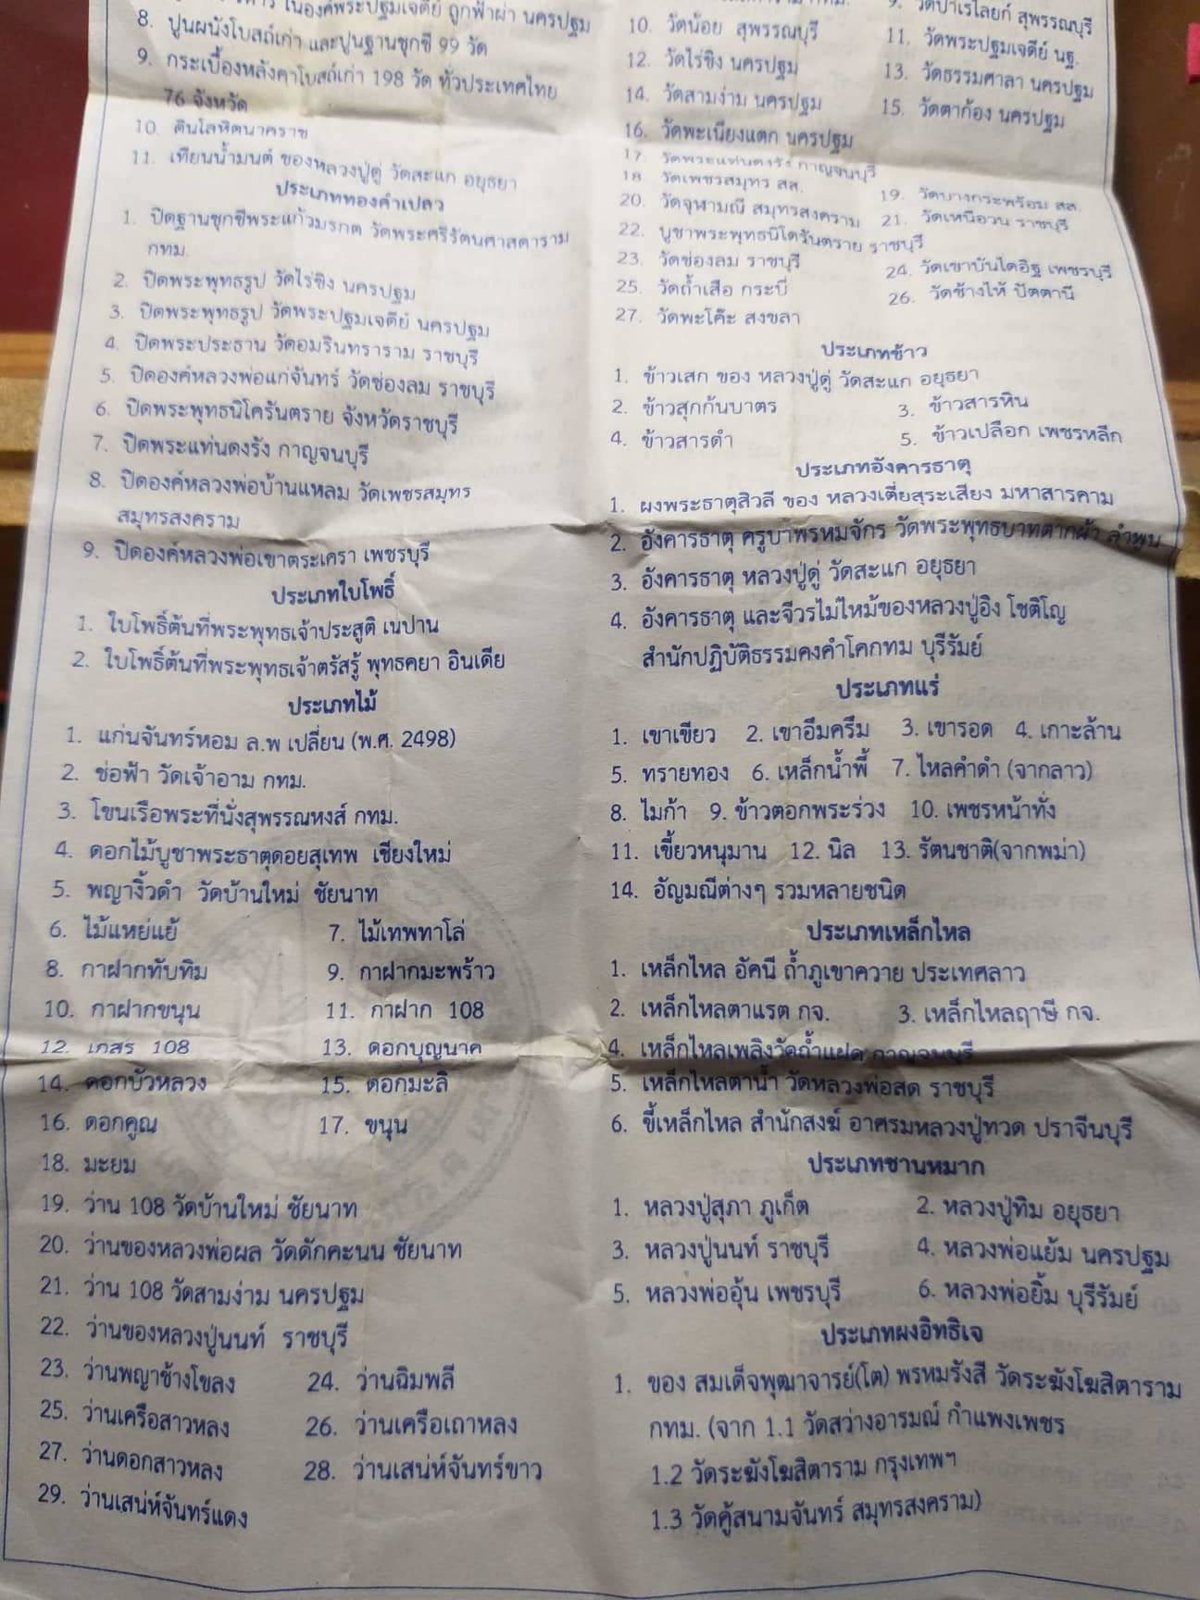 ในองค์พระปฐมเจดีย์ ถูกฟ้าผ่า นครปฐม
8. ปูนผนังโบสถ์เก่า และปูนฐานชุกชี 99 วัด
9. กระเบื้องหลังคาโบสถ์เก่า 198 วัด ทั่วประเทศไทย
76 จังหวัด
10. ดินโลหิตนาคราช
11. เทียนน้ำมนต์ ของหลวงปู่ดู่ วัดสะแก อยุธยา
ประเภททองคำเปลว
1. ปิดฐานชุกชีพระแก้วมรกต วัดพระศรีรัตนศาสดาราม
กทม.
2. ปิดพระพุทธรูป วัดไร่ขิง นครปฐม
3. ปิดพระพุทธรูป วัดพระปฐมเจดีย์ นครปฐม
4. ปิดพระประธาน วัดอมรินทราราม ราชบุรี
5. ปิดองค์หลวงพ่อแก่นจันทร์ วัดช่องลม ราชบุรี
6. ปิดพระพุทธนิโครันตราย จังหวัดราชบุรี
7. ปิดพระแท่นดงรัง กาญจนบุรี
8. ปิดองค์หลวงพ่อบ้านแหลม วัดเพชรสมุทร
สมุทรสงคราม
9. ปิดองค์หลวงพ่อเขาตระเครา เพชรบุรี
ประเภทใบโพธิ์
1. ใบโพธิ์ต้นที่พระพุทธเจ้าประสูติ เนปาน
2. ใบโพธิ์ต้นที่พระพุทธเจ้าตรัสรู้ พุทธคยา อินเดีย
ประเภทไม้
1. แก่นจันทร์หอม ล.พ เปลี่ยน (พ.ศ. 2498)
2. ช่อฟ้า วัดเจ้าอาม กทม.
3. โขนเรือพระที่นั่งสุพรรณหงส์ กทม.
4. ดอกไม้บูชาพระธาตุดอยสุเทพ เชียงใหม่
5. พญางิ้วดำ วัดบ้านใหม่ ชัยนาท
6. ไม้แหย่แย้ 7. ไม้เทพทาโล่
8. กาฝากทับทิม 9. กาฝากมะพร้าว
10. กาฝากขนุน 11. กาฝาก 108
12. เกสร 108 13. ดอกบุญนาค
14. ดอกบัวหลวง 15. ดอกมะลิ
16. ดอกคูณ 17. ขนุน
18. มะยม
19. ว่าน 108 วัดบ้านใหม่ ชัยนาท
20. ว่านของหลวงพ่อผล วัดดักคะนน ชัยนาท
21. ว่าน 108 วัดสามง่าม นครปฐม
22. ว่านของหลวงปู่นนท์ ราชบุรี
23. ว่านพญาช้างโขลง 24. ว่านฉิมพลี
25. ว่านเครือสาวหลง 26. ว่านเครือเถาหลง
27. ว่านดอกสาวหลง 28. ว่านเสน่ห์จันทร์ขาว
29. ว่านเสน่ห์จันทร์แดง
9. วัดป่าเรไลยก์ สุพรรณบุรี
10. วัดน้อย สุพรรณบุรี 11. วัดพระปฐมเจดีย์ นฐ.
12. วัดไร่ขิง นครปฐม 13. วัดธรรมศาลา นครปฐม
14. วัดสามง่าม นครปฐม 15. วัดตาก้อง นครปฐม
16. วัดพะเนียงแตก นครปฐม
17. วัดพระแท่นดงรัง กาญจนบุรี
18 วัดเพชรสมุทร สส. 19. วัดบางกระพร้อม สส.
20. วัดจุฬามณี สมุทรสงคราม 21. วัดเหนือวน ราชบุรี
22. บูชาพระพุทธนิโครันตราย ราชบุรี
23. วัดช่องลม ราชบุรี 24. วัดเขาบันไดอิฐ เพชรบุรี
25. วัดถ้ำเสือ กระบี่ 26. วัดช้างไห้ ปัตตานี
27. วัดพะโค๊ะ สงขลา
ประเภทข้าว
1. ข้าวเสก ของ หลวงปู่ดู่ วัดสะแก อยุธยา
2. ข้าวสุกก้นบาตร 3. ข้าวสารหิน
4. ข้าวสารดำ 5. ข้าวเปลือก เพชรหลีก
ประเภทอังคารธาตุ
1. ผงพระธาตุสิวลี ของ หลวงเตี่ยสุระเสียง มหาสารคาม
2. อังคารธาตุ ครูบาพรหมจักร วัดพระพุทธบาทตากผ้า ลำพูน
3. อังคารธาตุ หลวงปู่ดู่ วัดสะแก อยุธยา
4. อังคารธาตุ และจีวรไม่ไหม้ของหลวงปู่อิง โชติโญ
สำนักปฏิบัติธรรมคงคำโคกทม บุรีรัมย์
ประเภทแร่
1. เขาเขียว 2. เขาอึมครึม 3. เขารอด 4. เกาะล้าน
5. ทรายทอง 6. เหล็กน้ำพี้ 7. ไหลคำดำ (จากลาว)
8. ไมก้า 9. ข้าวตอกพระร่วง 10. เพชรหน้าทั่ง
11. เขี้ยวหนุมาน 12. นิล 13. รัตนชาติ(จากพม่า)
14. อัญมณีต่างๆ รวมหลายชนิด
ประเภทเหล็กไหล
1. เหล็กไหล อัคนี ถ้ำภูเขาควาย ประเทศลาว
2. เหล็กไหลตาแรต กจ. 3. เหล็กไหลฤาษี กจ.
4. เหล็กไหลเพลิงวัดถ้ำแฝด กาญจนบุรี
5. เหล็กไหลตาน้ำ วัดหลวงพ่อสด ราชบุรี
6. ขี้เหล็กไหล สำนักสงฆ์ อาศรมหลวงปู่ทวด ปราจีนบุรี
ประเภทชานหมาก
1. หลวงปู่สุภา ภูเก็ต 2. หลวงปู่ทิม อยุธยา
3. หลวงปู่นนท์ ราชบุรี 4. หลวงพ่อแย้ม นครปฐม
5. หลวงพ่ออุ้น เพชรบุรี 6. หลวงพ่อยิ้ม บุรีรัมย์
ประเภทผงอิทธิเจ
1. ของ สมเด็จพุฒาจารย์(โต) พรหมรังสี วัดระฆังโฆสิตาราม
กทม. (จาก 1.1 วัดสว่างอารมณ์ กำแพงเพชร
1.2 วัดระฆังโฆสิตาราม กรุงเทพฯ
1.3 วัดคู้สนามจันทร์ สมุทรสงคราม)